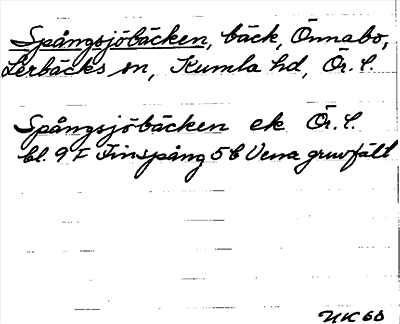 Spångsjöbäcken, bäck, Önnabo,
Lerbäcks sn, Kumla hd, Ör. l.
Spångsjöbäcken ek Ör. l.
bl. 9 F Finspång 5 b Vena gruvfält
NK 60